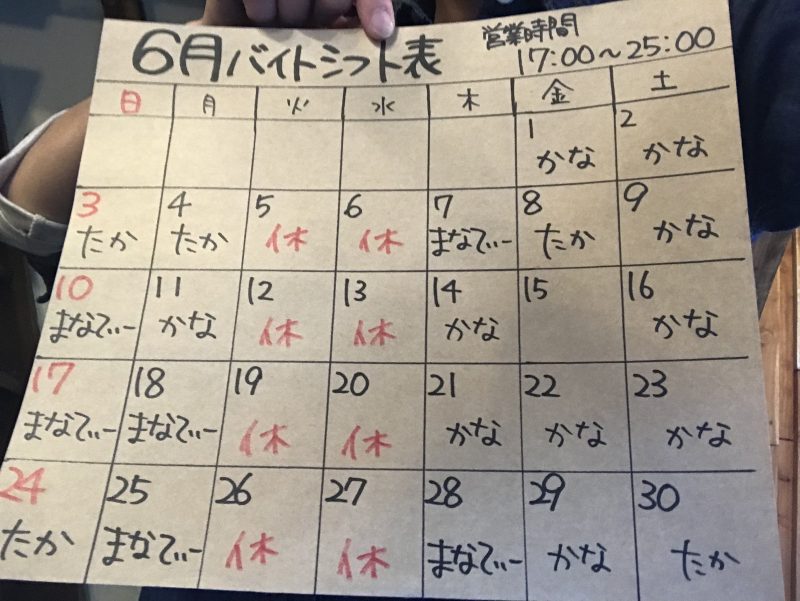 6月バイトシフト表
営業時間
17:00〜25:00
日 月 火 水 木 金 土
1 2
かな かな
3 4 5 6 7 8 9
たか たか 休 休 まなてぃー たか かな
10 11 12 13 14 15 16
まなてぃー かな 休 休 かな かな
17 18 19 20 21 22 23
まなてぃー まなてぃー 休 休 かな かな かな
24 25 26 27 28 29 30
たか まなてぃー 休 休 まなてぃー かな たか